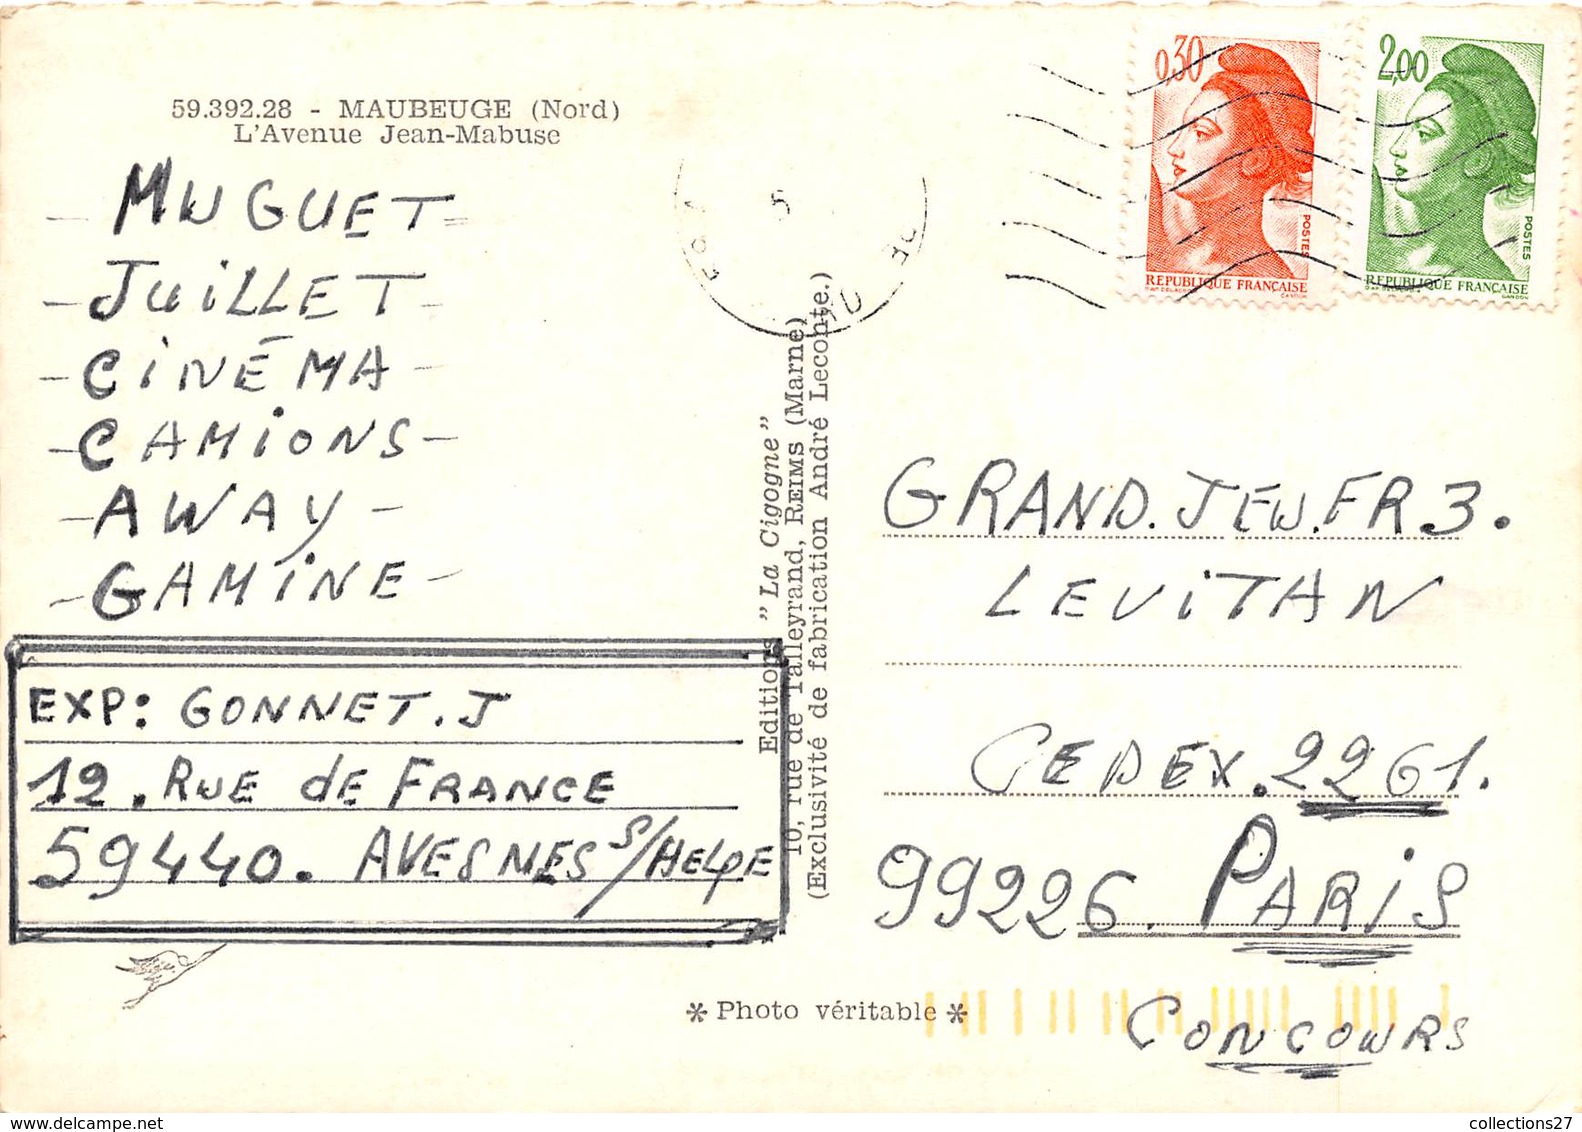 59.392.28 - MAUBEUGE (Nord)
L'Avenue Jean-Mabuse
- MUGUET -
- JUILLET -
- CINÉMA -
- CAMIONS -
- AWAY -
- GAMINE -
EXP: GONNET. J
12. RUE de FRANCE
59440. AVESNES S/HELPE
Editions "La Cigogne"
10, rue de Talleyrand, REIMS (Marne)
(Exclusivité de fabrication André Leconte.)
* Photo véritable *
0,30
POSTES
REPUBLIQUE FRANÇAISE
2,00
POSTES
REPUBLIQUE FRANÇAISE
GANDON
GRAND. JEU. FR3.
LEVITAN
CEDEX. 2261.
99226. PARIS
CONCOURS
collections27